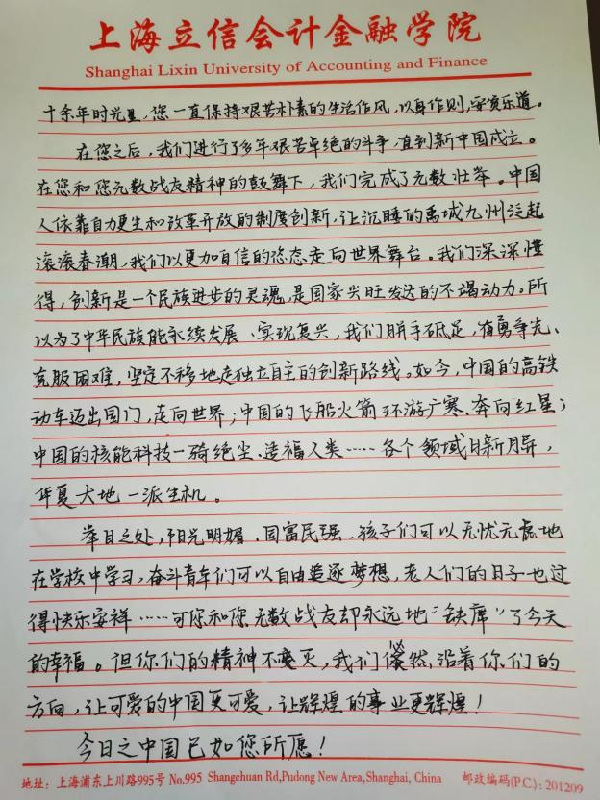 上海立信会计金融学院
Shanghai Lixin University of Accounting and Finance
十余年时光里,您一直保持艰苦朴素的生活作风,以身作则,安贫乐道。
在您之后,我们进行了多年艰苦卓绝的斗争,直到新中国成立。
在您和您无数战友精神的鼓舞下,我们完成了无数壮举。中国
人依靠自力更生和改革开放的制度创新,让沉睡的禹域九州泛起
滚滚春潮,我们以更加自信的姿态走向世界舞台。我们深深懂
得,创新是一个民族进步的灵魂,是国家兴旺发达的不竭动力。所
以为了中华民族能永续发展、实现复兴,我们胼手砥足,奋勇争先、
克服困难,坚定不移地走独立自主的创新路线。如今,中国的高铁
动车迈出国门,走向世界;中国的飞船火箭环游广寒、奔向红星;
中国的核能科技一骑绝尘、造福人类……各个领域日新月异,
华夏大地一派生机。
举目之处,阳光明媚、国富民强,孩子们可以无忧无虑地
在学校中学习,奋斗青年们可以自由追逐梦想,老人们的日子也过
得快乐安祥……可您和您无数战友却永远地“缺席”了今天
的幸福。但你们的精神不灭,我们依然沿着你们的
方向,让可爱的中国更可爱,让辉煌的事业更辉煌!
今日之中国已如您所愿!
地址:上海浦东上川路995号 No.995 Shangchuan Rd,Pudong New Area,Shanghai, China 邮政编码(P.C.): 201209